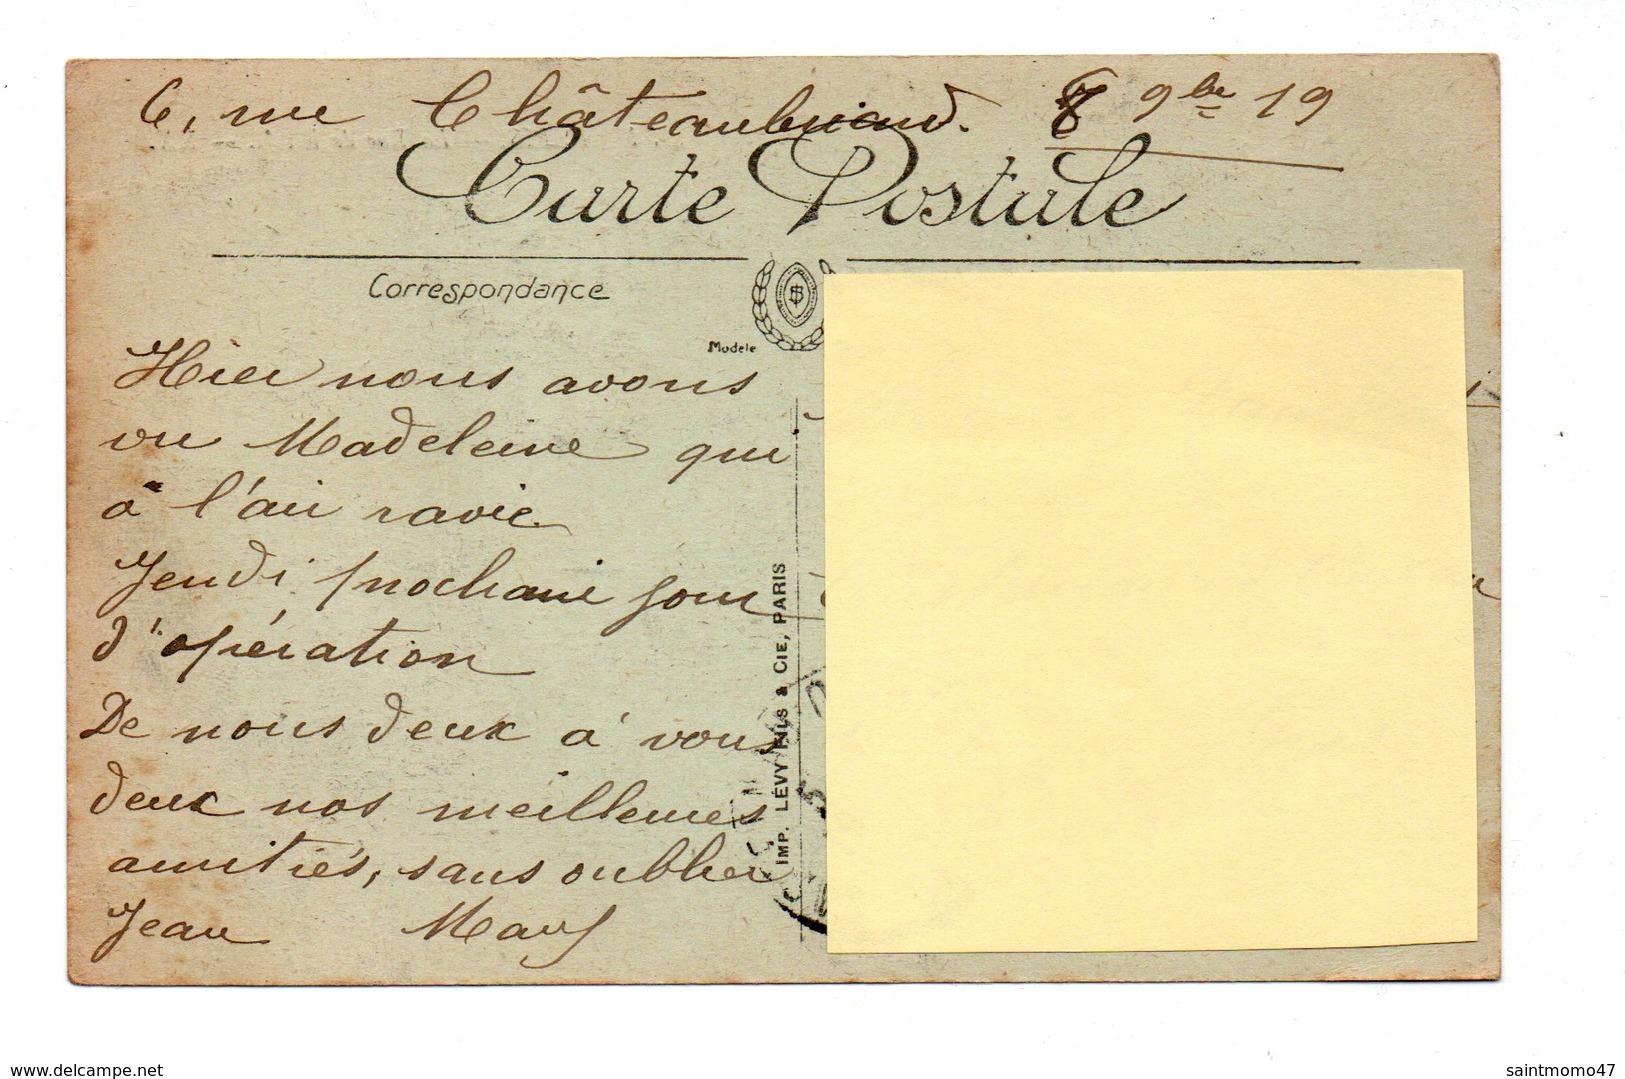 6, rue Châteaubriand. 8 9bre 19
Carte Postale
Correspondance
Modèle
Hier nous avons
vu Madeleine qui
a l'air ravie
Jeudi prochain jour
d'opération
De nous deux à vous
deux nos meilleures
amitiés, sans oublier
Jean
IMP. LÉVY FILS & CIE, PARIS
www.delcampe.net
saintmomo47